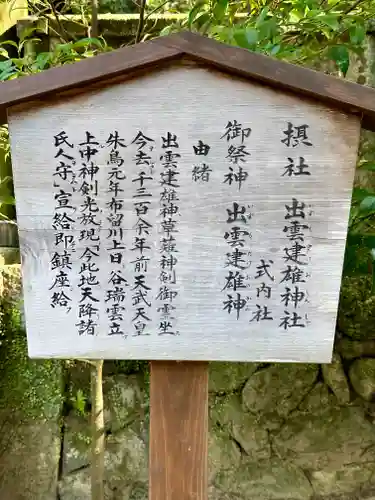 摂社 出雲建雄神社
式内社
御祭神 出雲建雄神
由緒
出雲建雄神草薙神剣御霊坐
今去千三百余年前天武天皇
朱鳥元年布留川上日谷瑞雲立
上中神剣光放現今此地天降諸
氏人守宣給即鎮座給